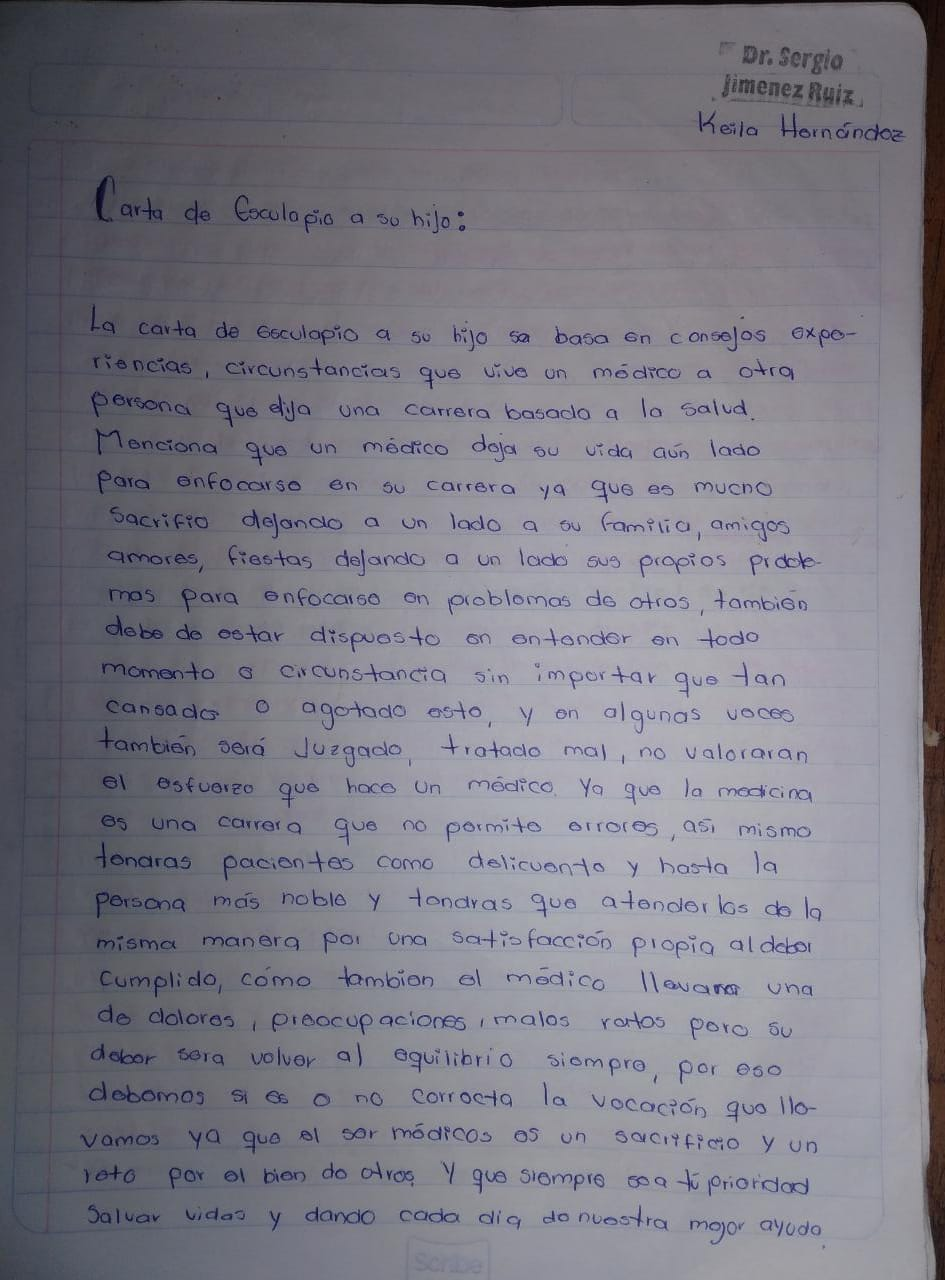 Dr. Sergio
Jimenez Ruiz
Keila Hernández
Carta de Esculapio a su hijo:
La carta de esculapio a su hijo se basa en consejos expe-
riencias, circunstancias que vive un médico a otra
persona que elija una carrera basado a la salud.
Menciona que un médico deja su vida aún lado
para enfocarse en su carrera ya que es mucho
sacrifio dejando a un lado a su familia, amigos
amores, fiestas dejando a un lado sus propios proble-
mas para enfocarse en problemas de otros, también
debe de estar dispuesto en entender en todo
momento o circunstancia sin importar que tan
cansado o agotado este, y en algunas veces
también será Juzgado, tratado mal, no valoraran
el esfuerzo que hace un médico. Ya que la medicina
es una carrera que no permite errores, asi mismo
tendras pacientes como delicuente y hasta la
persona más noble y tendras que atenderlos de la
misma manera por una satisfacción propia al deber
cumplido, cómo tambien el médico llevara una
de dolores, preocupaciones, malos ratos pero su
deber sera volver al equilibrio siempre, por eso
debemos si es o no correcta la vocación que lle-
vamos ya que el ser médicos es un sacrificio y un
reto por el bien de otros, Y que siempre sea tú prioridad
Salvar vidas y dando cada dia de nuestra mejor ayuda.
Scribe